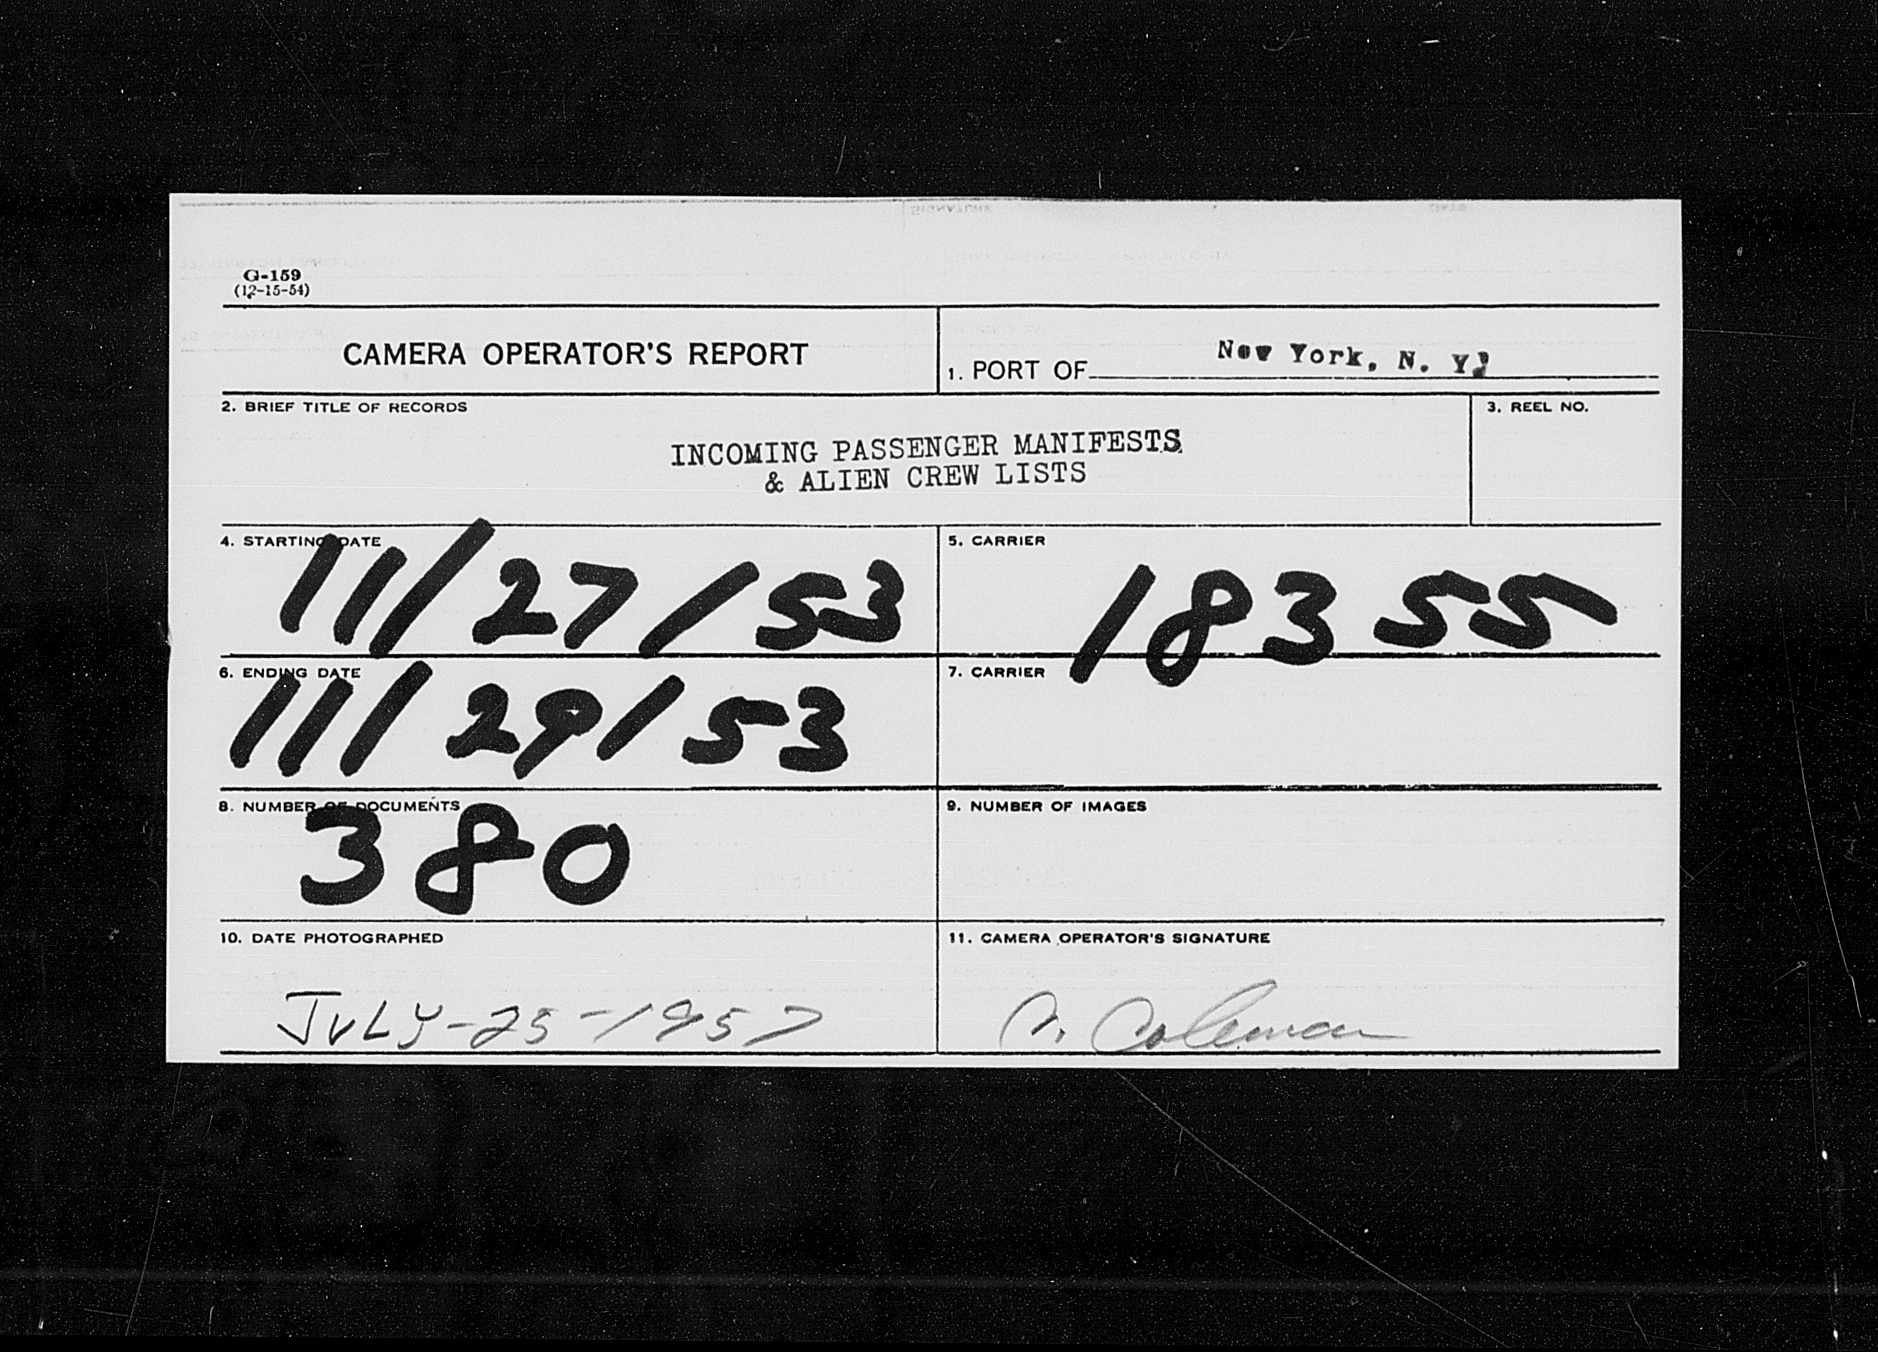 G-159
(12-15-54)
CAMERA OPERATOR'S REPORT
1. PORT OF New York, N. Y.
2. BRIEF TITLE OF RECORDS
3. REEL NO.
INCOMING PASSENGER MANIFESTS
& ALIEN CREW LISTS
4. STARTING DATE
11/27/53
5. CARRIER
18355
6. ENDING DATE
11/29/53
7. CARRIER
8. NUMBER OF DOCUMENTS
380
9. NUMBER OF IMAGES
10. DATE PHOTOGRAPHED
JULY-25-1957
11. CAMERA OPERATOR'S SIGNATURE
Coleman